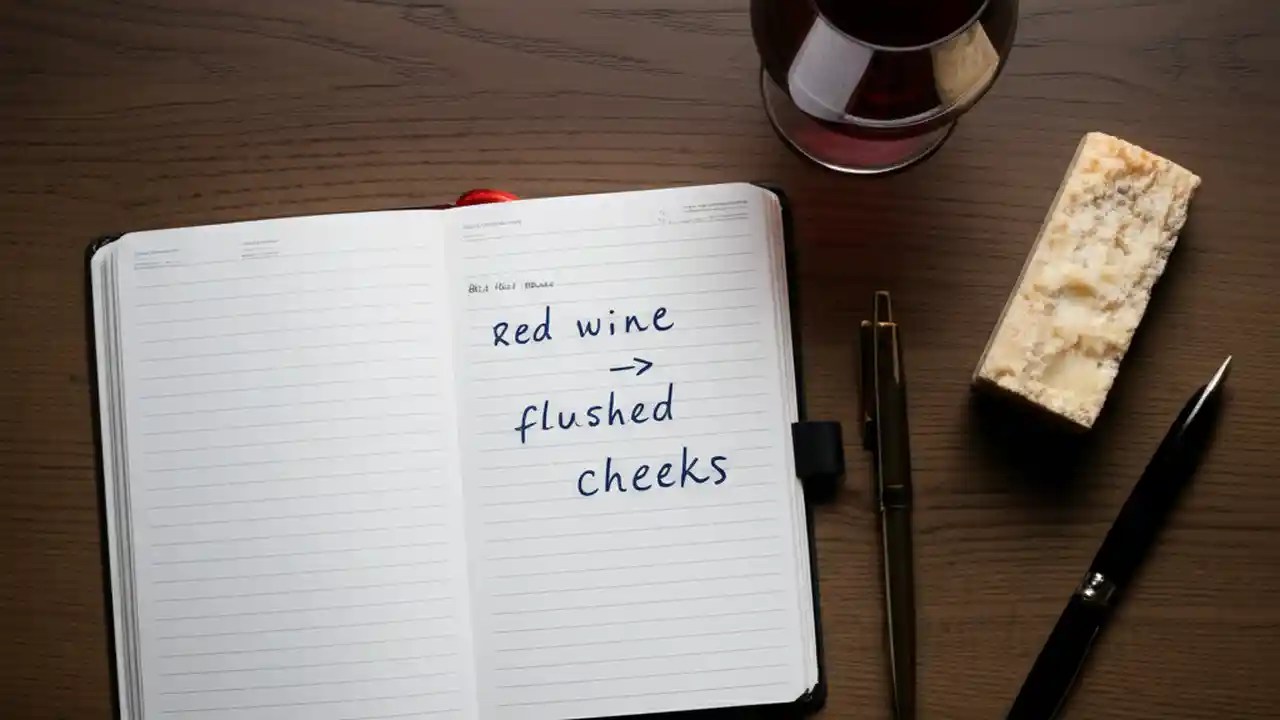 Red wine
→
flushed
cheeks